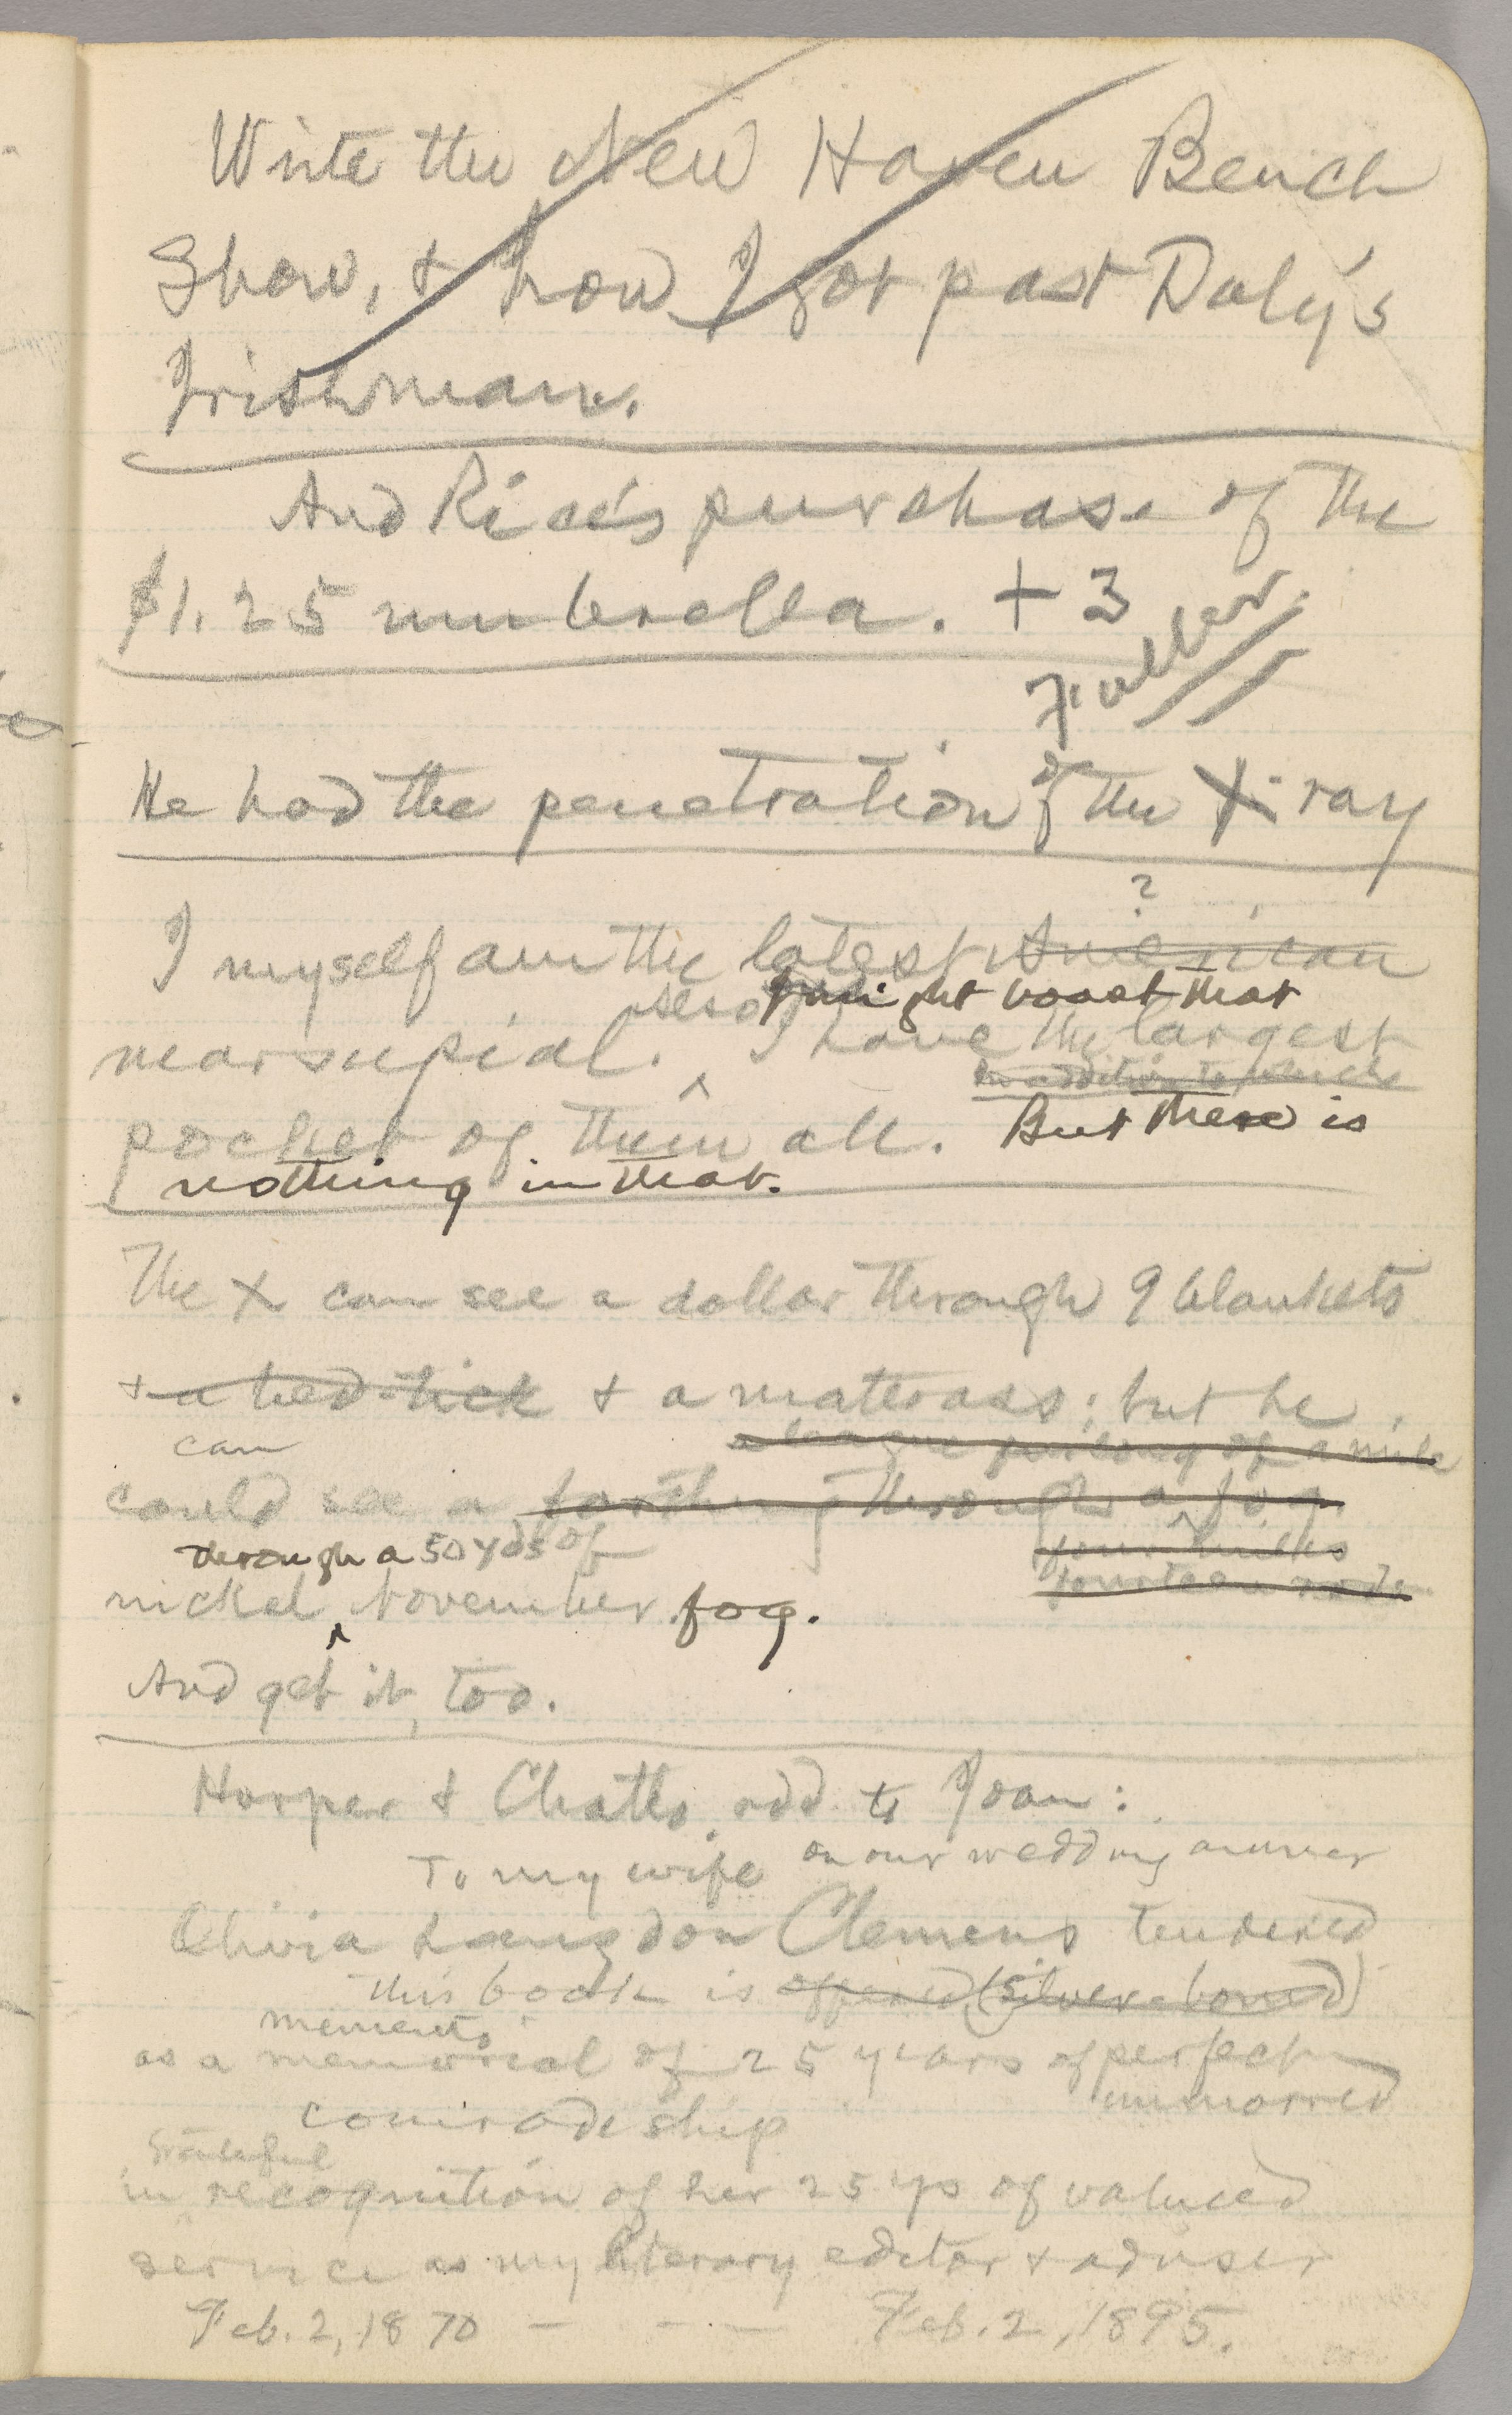 Write the New Haven Bench
Show, & how I got past Daly's
Irishman.
And Rice's purchase of the
$1.25 umbrella. + 3
Fuller.
He had the penetration of the X-ray
?
I myself am the latest American
I might boast that
marsupial. I have the largest
in addition to which
pocket of them all. But there is
nothing in that.
The X can see a dollar through 9 blankets
& a bed-tick & a matterass; but he
a league furlong of a mile
can
could see a farthing through a fog
through a 50 yds of
four miles
fourteen rods
nickel November fog.
And get it, too.
Harper & Chatto, add to Joan:
To my wife on our wedding anniver
Olivia Langdon Clemens tendered
this book is offered (silver-bound)
memento
as a memorial of 25 years of perfect
unmarred
comradeship
Grateful
in recognition of her 25 ys of valued
service as my literary editor & adviser
Feb. 2, 1870 - - - Feb. 2, 1895.